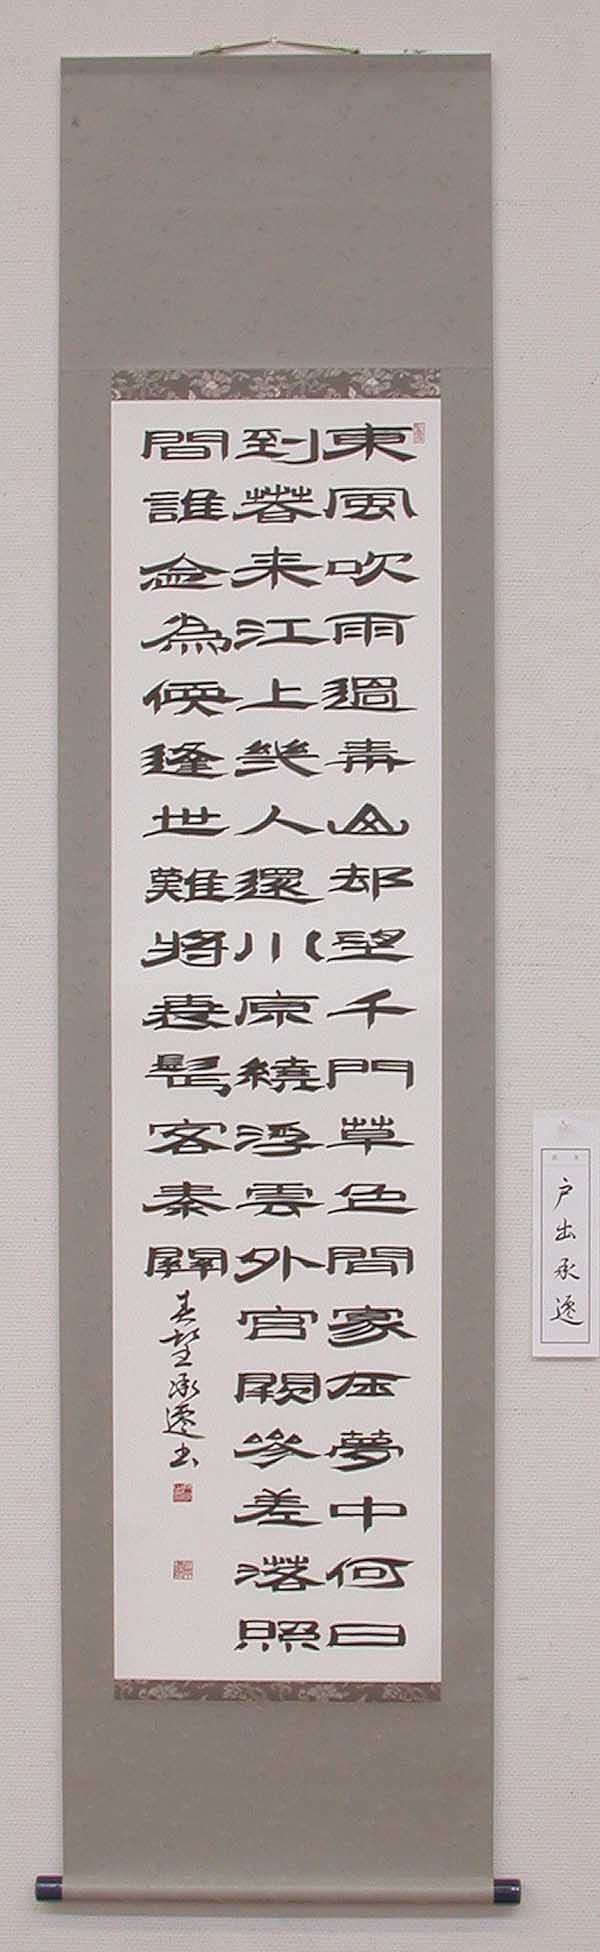 東風吹雨過青山却望千門草色間家在夢中何日
到春来江上幾人還川原繞浮雲外宮闕參差落照
間誰念為儒逢世難將衰鬢客秦關
承遷書
戸出承遷